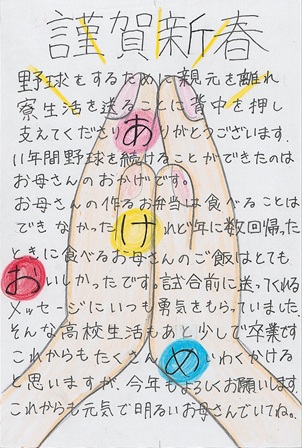 謹賀新春
野球をするために親元を離れ
寮生活を送ることに背中を押し
支えてくださりありがとうございます。
11年間野球を続けることができたのは
お母さんのおかげです。
お母さんの作るお弁当は食べることは
できなかったけれど年に数回帰った
ときに食べるお母さんのご飯はとても
おいしかったです。試合前に送ってくれる
メッセージにいつも勇気をもらっていました。
そんな高校生活もあと少しで卒業です
これからもたくさんめいわくかける
と思いますが、今年もよろしくお願いします。
これからも元気で明るいお母さんでいてね。